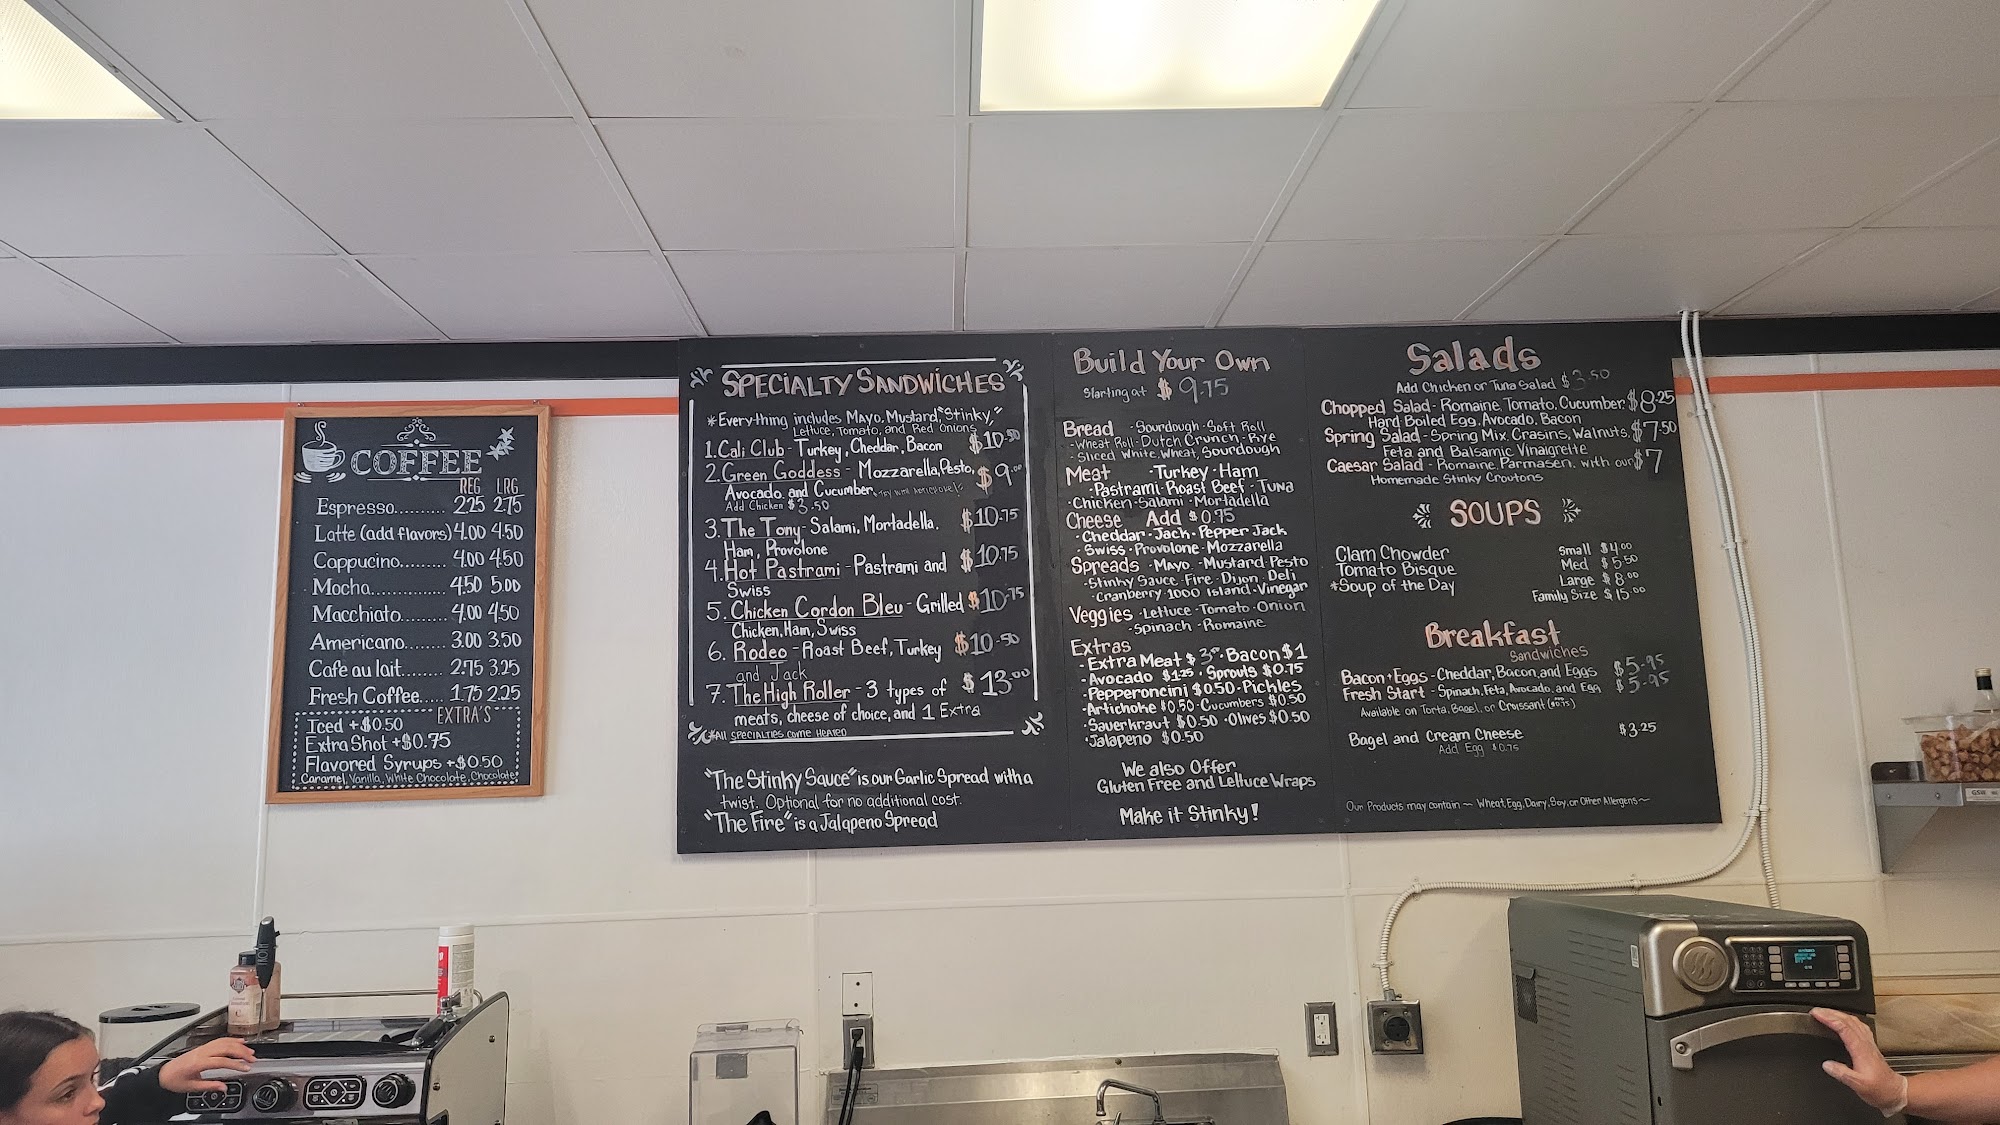 COFFEE
REG LRG
Espresso.......... 2.25 2.75
Latte (add flavors) 4.00 4.50
Cappucino......... 4.00 4.50
Mocha............... 4.50 5.00
Macchiato......... 4.00 4.50
Americano........ 3.00 3.50
Café au lait........ 2.75 3.25
Fresh Coffee..... 1.75 2.25
EXTRA'S
Iced +$0.50
Extra Shot +$0.75
Flavored Syrups +$0.50
Caramel, Vanilla, White Chocolate, Chocolate
SPECIALTY SANDWICHES
*Everything includes Mayo, Mustard, "Stinky,"
Lettuce, Tomato, and Red Onions
1. Cali Club - Turkey, Cheddar, Bacon $10.50
2. Green Goddess - Mozzarella, Pesto, $9.00
Avocado and Cucumber.
Add Chicken $3.50
3. The Tony - Salami, Mortadella, $10.75
Ham, Provolone
4. Hot Pastrami - Pastrami and $10.75
Swiss
5. Chicken Cordon Bleu - Grilled $10.75
Chicken, Ham, Swiss
6. Rodeo - Roast Beef, Turkey $10.50
and Jack
7. The High Roller - 3 types of $13.00
meats, cheese of choice, and 1 Extra
*All SPECIALTIES COME HEATED
"The Stinky Sauce" is our Garlic Spread with a
twist. Optional for no additional cost.
"The Fire" is a Jalapeno Spread
Build Your Own
Starting at $9.75
Bread · Sourdough · Soft Roll
· Wheat Roll · Dutch Crunch · Rye
· Sliced White, Wheat, Sourdough
Meat · Turkey · Ham
· Pastrami · Roast Beef · Tuna
· Chicken · Salami · Mortadella
Cheese Add $0.75
· Cheddar · Jack · Pepper Jack
· Swiss · Provolone · Mozzarella
Spreads · Mayo · Mustard · Pesto
· Stinky Sauce · Fire · Dijon · Deli
· Cranberry · 1000 Island · Vinegar
Veggies · Lettuce · Tomato · Onion
· Spinach · Romaine
Extras
· Extra Meat $3.00 · Bacon $1
· Avocado $1.25 · Sprouts $0.75
· Pepperoncini $0.50 · Pickles
· Artichoke $0.50 · Cucumbers $0.50
· Sauerkraut $0.50 · Olives $0.50
· Jalapeno $0.50
We also Offer
Gluten Free and Lettuce Wraps
Make it Stinky!
Salads
Add Chicken or Tuna Salad $3.50
Chopped Salad - Romaine, Tomato, Cucumber, $8.25
Hard Boiled Egg, Avocado, Bacon
Spring Salad - Spring Mix, Crasins, Walnuts, $7.50
Feta and Balsamic Vinaigrette
Caesar Salad - Romaine, Parmasen, with our $7
Homemade Stinky Croutons
SOUPS
Clam Chowder Small $4.00
Tomato Bisque Med $5.50
*Soup of the Day Large $8.00
Family Size $15.00
Breakfast
Sandwiches
Bacon + Eggs - Cheddar, Bacon, and Eggs $5.95
Fresh Start - Spinach, Feta, Avocado, and Egg $5.95
Available on Torta, Bagel, or Croissant ($0.75)
Bagel and Cream Cheese $3.25
Add Egg $0.75
Our Products may contain ~ Wheat, Egg, Dairy, Soy, or Other Allergens ~